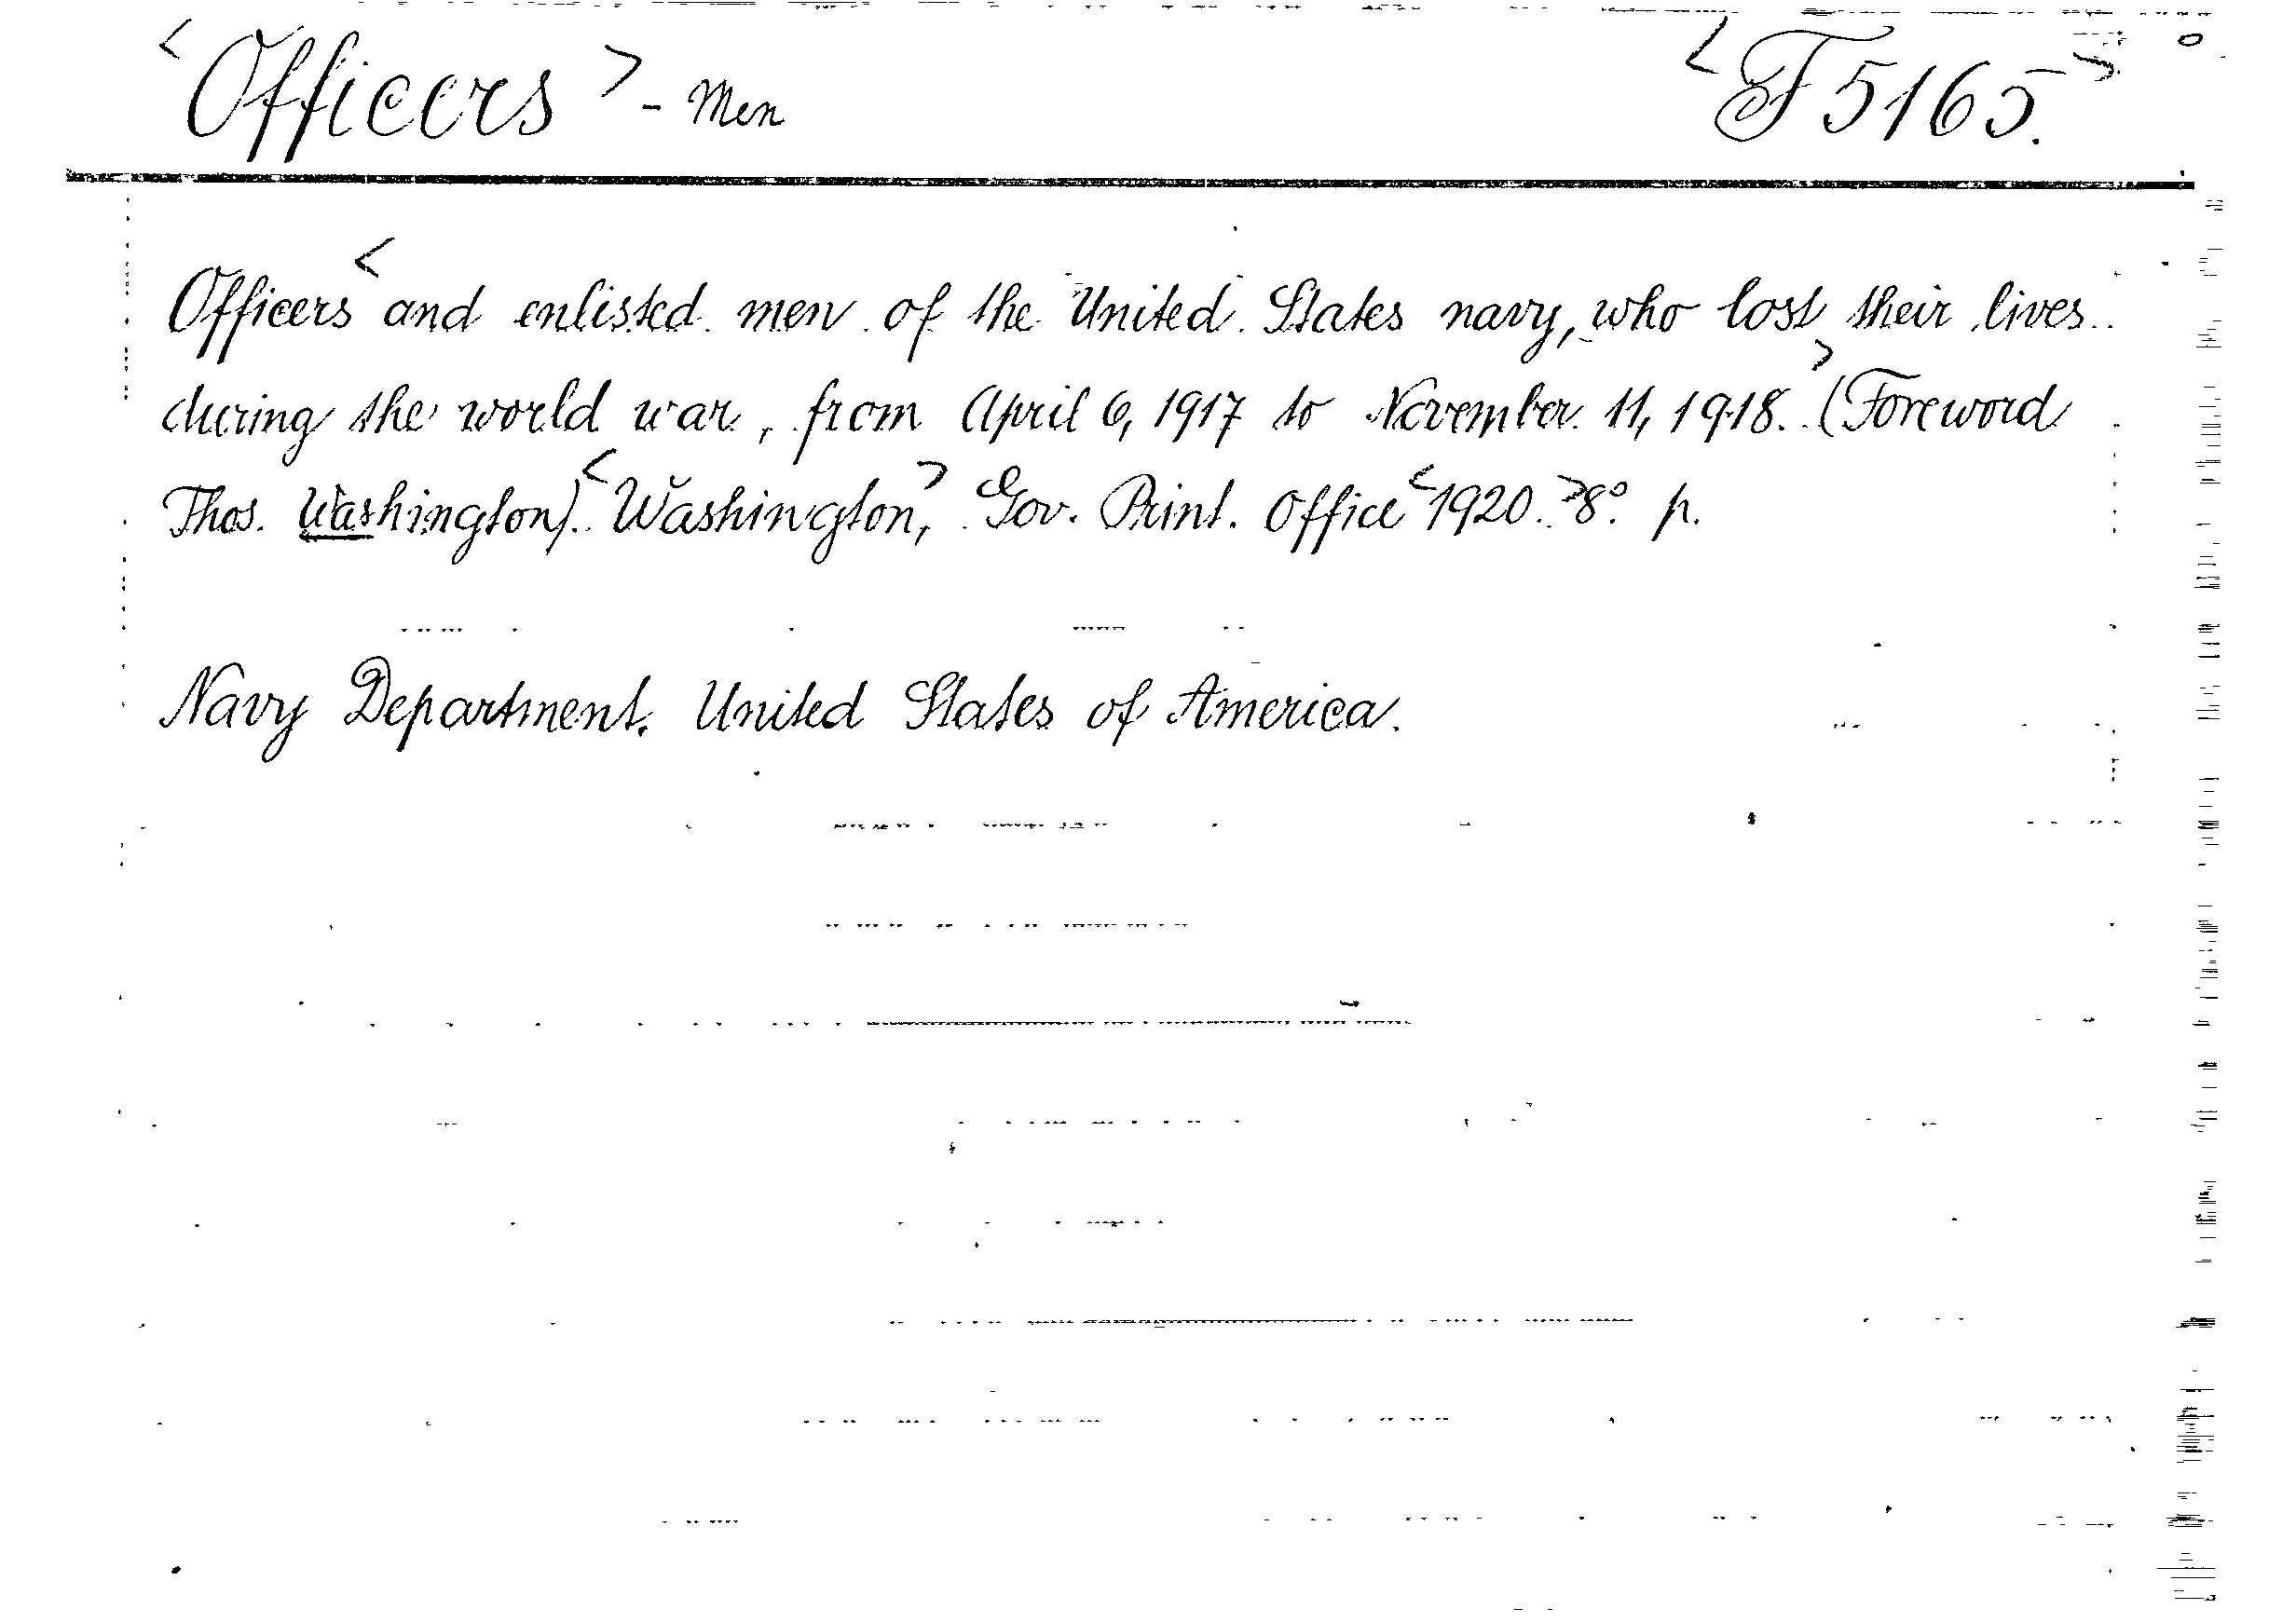 <Officers> - Men <F 5165.>
Officers <and enlisted men of the United States navy, who lost their lives
during the world war, from April 6, 1917 to November 11, 1918.> (Foreword
Thos. Washington). <Washington,> Gov. Print. Office <1920.> 8° p.
Navy Department. United States of America.